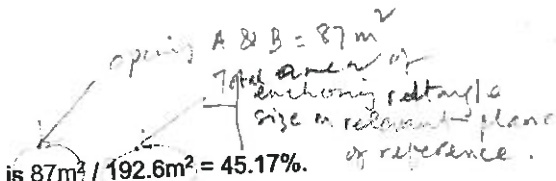 opening A & B = 87 m²
Total area of
enclosing rectangle
size in relevant plane
of reference.
is 87m² / 192.6m² = 45.17%.